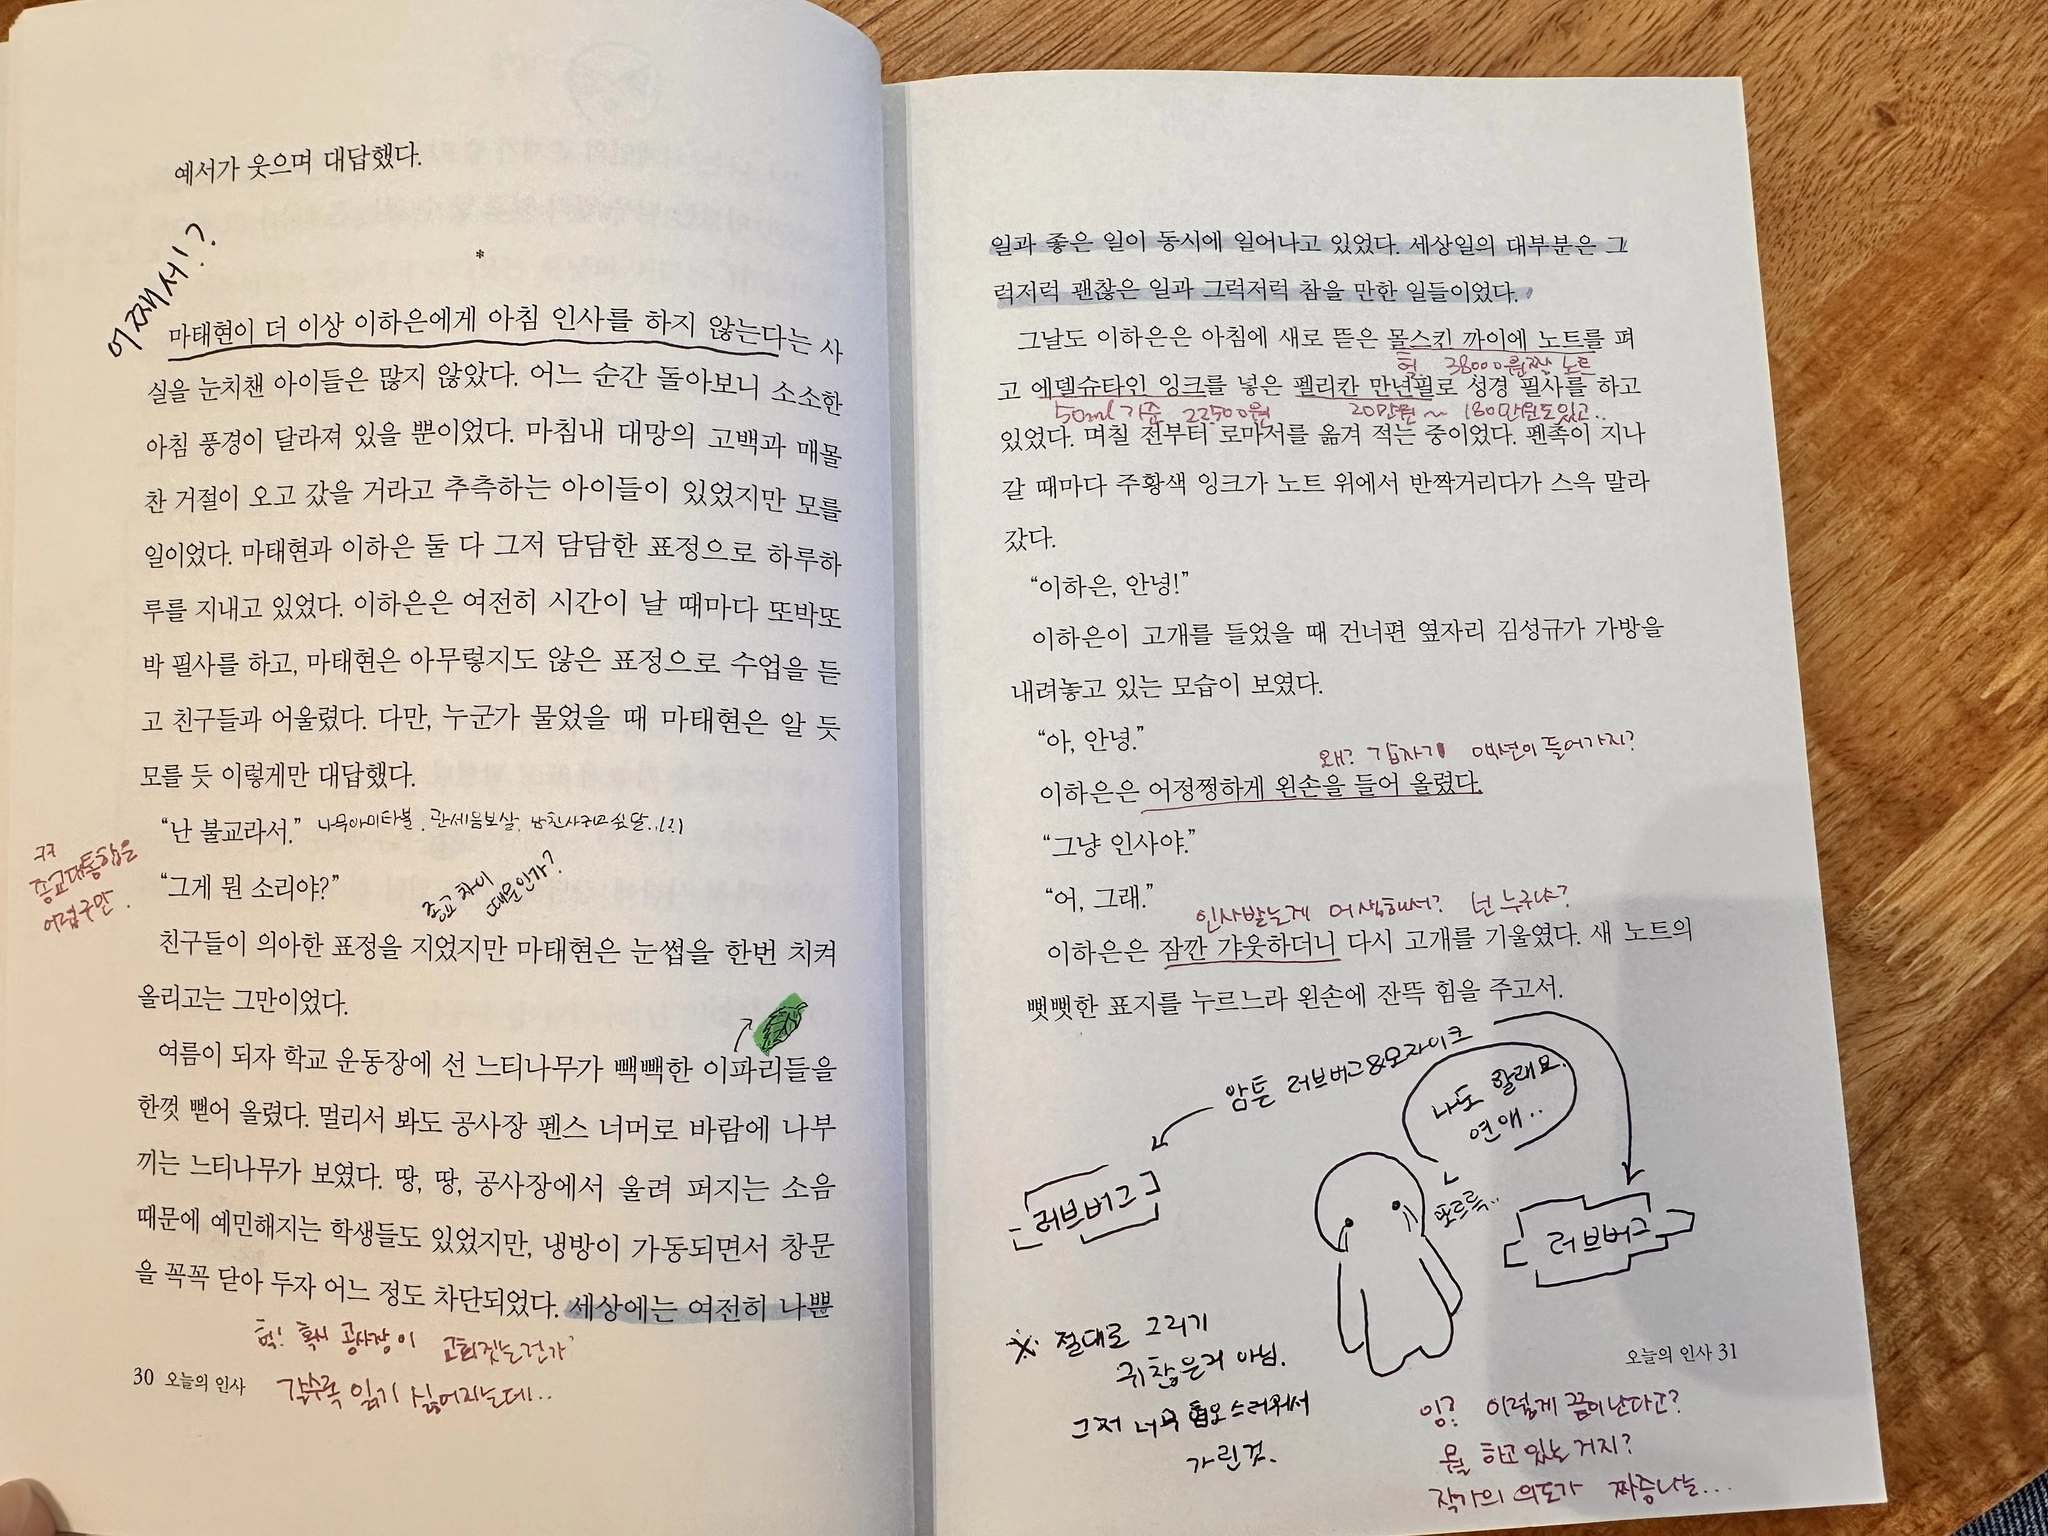 예서가 웃으며 대답했다.
어째서!?
*
마태현이 더 이상 이하은에게 아침 인사를 하지 않는다는 사
실을 눈치챈 아이들은 많지 않았다. 어느 순간 돌아보니 소소한
아침 풍경이 달라져 있을 뿐이었다. 마침내 대망의 고백과 매몰
찬 거절이 오고 갔을 거라고 추측하는 아이들이 있었지만 모를
일이었다. 마태현과 이하은 둘 다 그저 담담한 표정으로 하루하
루를 지내고 있었다. 이하은은 여전히 시간이 날 때마다 또박또
박 필사를 하고, 마태현은 아무렇지도 않은 표정으로 수업을 듣
고 친구들과 어울렸다. 다만, 누군가 물었을 때 마태현은 알 듯
모를 듯 이렇게만 대답했다.
“난 불교라서.” 나무아미타불. 관세음보살.
ㅋㅋ
종교대통합은
어렵구만.
“그게 뭔 소리야?”
종교 차이
때문인가?
친구들이 의아한 표정을 지었지만 마태현은 눈썹을 한번 치켜
올리고는 그만이었다.
여름이 되자 학교 운동장에 선 느티나무가 빽빽한 이파리들을
한껏 뻗어 올렸다. 멀리서 봐도 공사장 펜스 너머로 바람에 나부
끼는 느티나무가 보였다. 땅, 땅, 공사장에서 울려 퍼지는 소음
때문에 예민해지는 학생들도 있었지만, 냉방이 가동되면서 창문
을 꼭꼭 닫아 두자 어느 정도 차단되었다. 세상에는 여전히 나쁜
헉! 혹시 공사장이 교회짓는건가?
갈수록 읽기 싫어지는데..
30 오늘의 인사
일과 좋은 일이 동시에 일어나고 있었다. 세상일의 대부분은 그
럭저럭 괜찮은 일과 그럭저럭 참을 만한 일들이었다.
그날도 이하은은 아침에 새로 뜯은 몰스킨 까이에 노트를 펴
헉. 38000원짜리 노트
고 에델슈타인 잉크를 넣은 펠리칸 만년필로 성경 필사를 하고
50ml 기준 22500원 20만원~ 180만원도있고..
있었다. 며칠 전부터 로마서를 옮겨 적는 중이었다. 펜촉이 지나
갈 때마다 주황색 잉크가 노트 위에서 반짝거리다가 스윽 말라
갔다.
“이하은, 안녕!”
이하은이 고개를 들었을 때 건너편 옆자리 김성규가 가방을
내려놓고 있는 모습이 보였다.
“아, 안녕.”
왜? 갑자기 들어가지?
이하은은 어정쩡하게 왼손을 들어 올렸다.
“그냥 인사야.”
“어, 그래.”
인사받는게 어색해서? 넌 누구냐?
이하은은 잠깐 갸웃하더니 다시 고개를 기울였다. 새 노트의
뻣뻣한 표지를 누르느라 왼손에 잔뜩 힘을 주고서.
암튼 러브버그&모자이크
나도 할래요.
연애..
또르륵..
러브버그
러브버그
※ 절대로 그리기
귀찮은거 아님.
그저 너무 혐오스러워서
가린것.
오늘의 인사 31
잉? 이렇게 끝이난다고?
뭘 하고 있는 거지?
작가의 의도가 짜증나는...